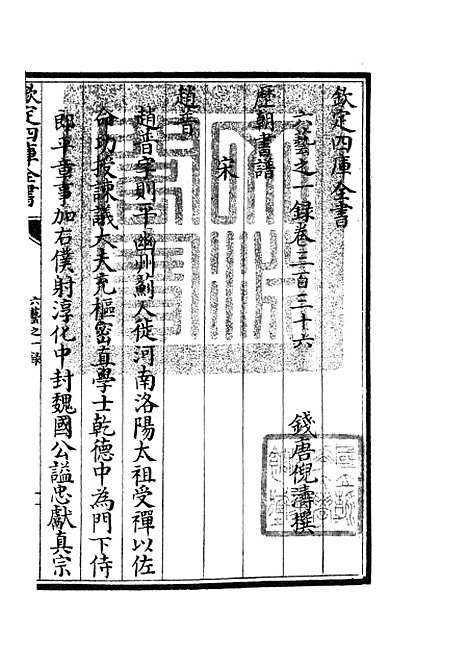 欽定四庫全書
六藝之一錄卷三百三十六
錢唐倪濤撰
歷朝書譜
宋
趙普
趙普字則平幽州薊人徙河南洛陽太祖受禪以佐
命功授諫議大夫充樞密直學士乾德中為門下侍
郎平章事加右僕射淳化中封魏國公諡忠獻真宗
欽定四庫全書
六藝之一錄
一